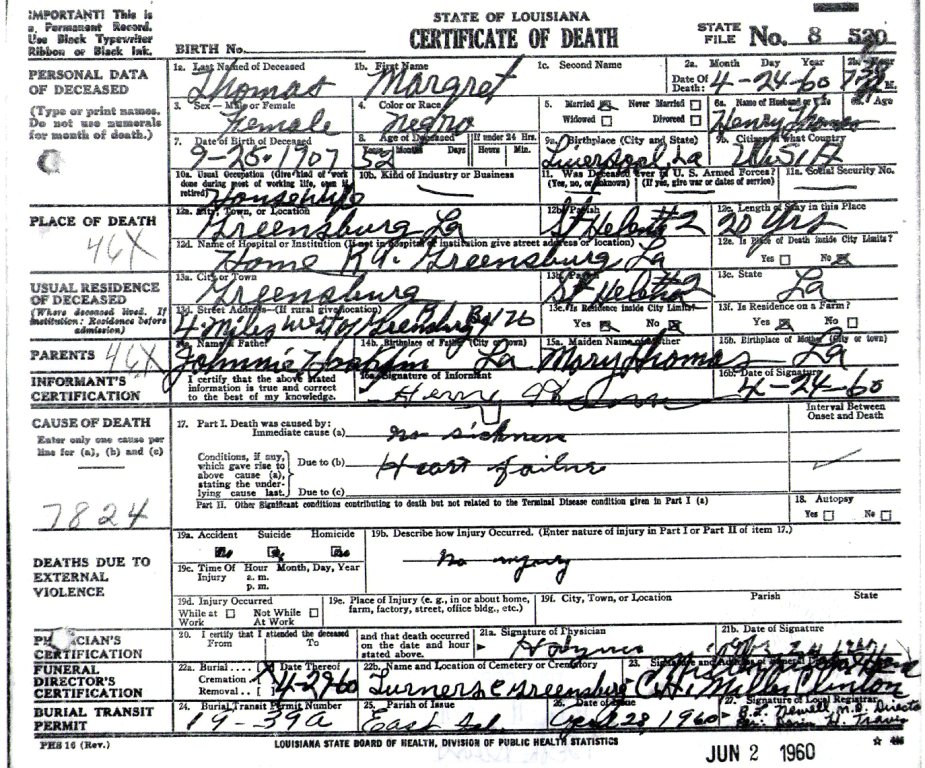 IMPORTANT! This is
a Permanent Record.
Use Black Typewriter
Ribbon or Black Ink.
STATE OF LOUISIANA
CERTIFICATE OF DEATH
BIRTH No.
STATE
FILE No. 8 520
PERSONAL DATA
OF DECEASED
(Type or print names.
Do not use numerals
for month of death.)
1a. Last Name of Deceased 1b. First Name 1c. Second Name 2a. Month Day Year
Thomas Margret Date Of Death: 4-24-60
3. Sex—Male or Female 4. Color or Race 5. Married Never Married 6a. Name of Husband or Wife 6b. Age
Female Negro Widowed Divorced Henry Thomas
7. Date of Birth of Deceased 8. Age of Deceased If under 24 Hrs. 9a. Birthplace (City and State) 9b. Citizen of What Country
Years Months Days Hours Min.
1907 52 La
10a. Usual Occupation (Give kind of work
done during most of working life, even if
retired)
10b. Kind of Industry or Business
11. Was Deceased Ever in U. S. Armed Forces?
(Yes, no, or unknown) (If yes, give war or dates of service)
11a. Social Security No.
Housewife
PLACE OF DEATH
46X
12a. City, Town, or Location 12b. Parish 12c. Length of Stay in this Place
Greensburg La St Helena #2 20 yrs
12d. Name of Hospital or Institution (If not in hospital or institution give street address or location) 12e. Is Place of Death inside City Limits?
Home Greensburg La Yes No
USUAL RESIDENCE
OF DECEASED
(Where deceased lived. If
institution: Residence before
admission)
13a. City or Town 13b. Parish 13c. State
Greensburg St Helena La
13d. Street Address—(If rural give location) 13e. Is Residence inside City Limits? 13f. Is Residence on a Farm?
4. Miles West of Greensburg Yes No Yes No
PARENTS 46X
14a. Name of Father 14b. Birthplace of Father (City or town) 15a. Maiden Name of Mother 15b. Birthplace of Mother (City or town)
Johnnie La Mary Thomas La
INFORMANT'S
CERTIFICATION
I certify that the above stated
information is true and correct
to the best of my knowledge.
16a. Signature of Informant 16b. Date of Signature
4-24-60
CAUSE OF DEATH
Enter only one cause per
line for (a), (b) and (c)
7824
Interval Between
Onset and Death
17. Part I. Death was caused by:
Immediate cause (a) no sickness
Conditions, if any,
which gave rise to
above cause (a),
stating the under-
lying cause last.
Due to (b) Heart failure
Due to (c)
Part II. Other Significant conditions contributing to death but not related to the Terminal Disease condition given in Part I (a)
18. Autopsy
Yes No
DEATHS DUE TO
EXTERNAL
VIOLENCE
19a. Accident Suicide Homicide 19b. Describe how Injury Occurred. (Enter nature of injury in Part I or Part II of item 17.)
No injury
19c. Time Of Hour Month, Day, Year
Injury a. m.
p. m.
19d. Injury Occurred
While at Work Not While At Work
19e. Place of Injury (e. g., in or about home,
farm, factory, street, office bldg., etc.)
19f. City, Town, or Location Parish State
PHYSICIAN'S
CERTIFICATION
20. I certify that I attended the deceased
From To
and that death occurred
on the date and hour
stated above.
21a. Signature of Physician 21b. Date of Signature
FUNERAL
DIRECTOR'S
CERTIFICATION
22a. Burial Date Thereof
Cremation
Removal
4-29-60
22b. Name and Location of Cemetery or Crematory
Greensburg
23. Signature and Address of Funeral Director
Clinton
BURIAL TRANSIT
PERMIT
24. Burial Transit Permit Number 25. Parish of Issue 26. Date of Issue 27. Signature of Local Registrar
19-39a East April 28, 1960
PHS 16 (Rev.)
LOUISIANA STATE BOARD OF HEALTH, DIVISION OF PUBLIC HEALTH STATISTICS
JUN 2 1960